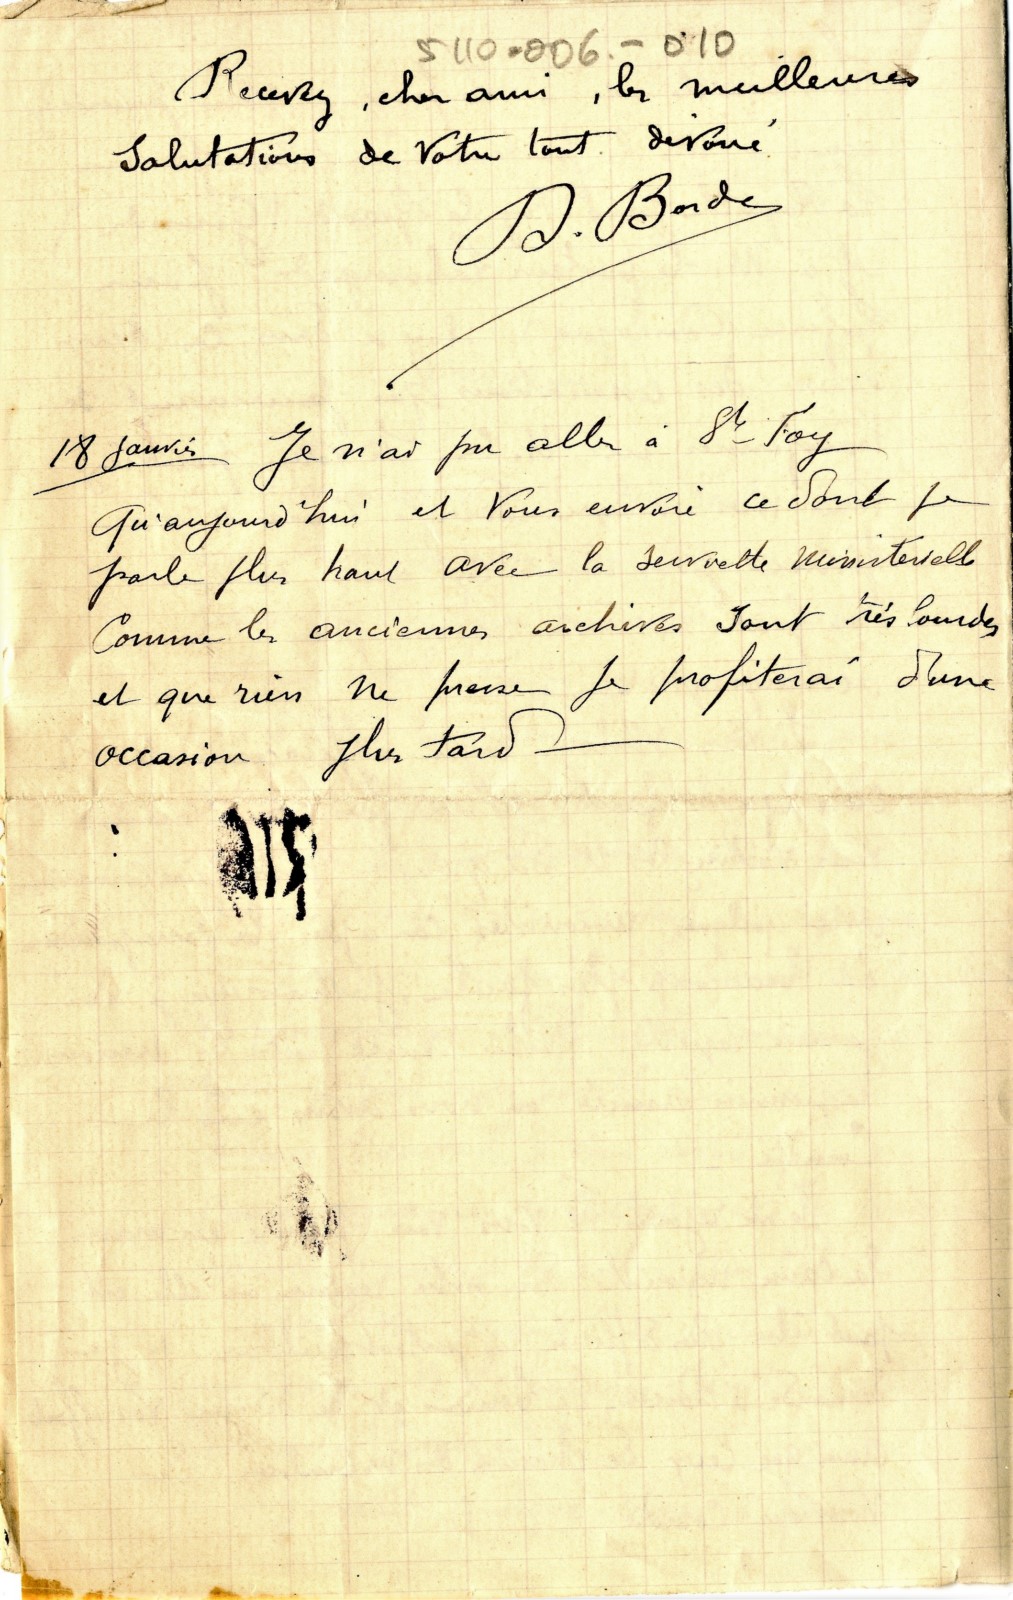 5110-006-010
Recevez, cher ami, les meilleures
Salutations de votre tout dévoué
D. Borde
18 Janvier Je n'ai pu aller à Ste Foy
qu'aujourd'hui et vous envoie ce dont je
parle plus haut avec la serviette ministerielle
Comme les anciennes archives sont très lourdes
et que rien ne presse je profiterai d'une
occasion plus tard